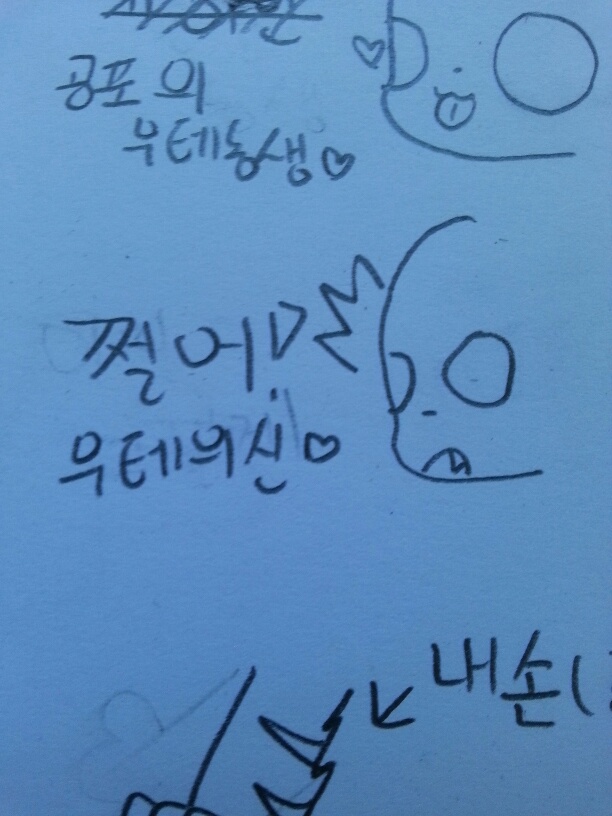 공포의
우테동생♡
쩔어!
우테의신♡
내손(